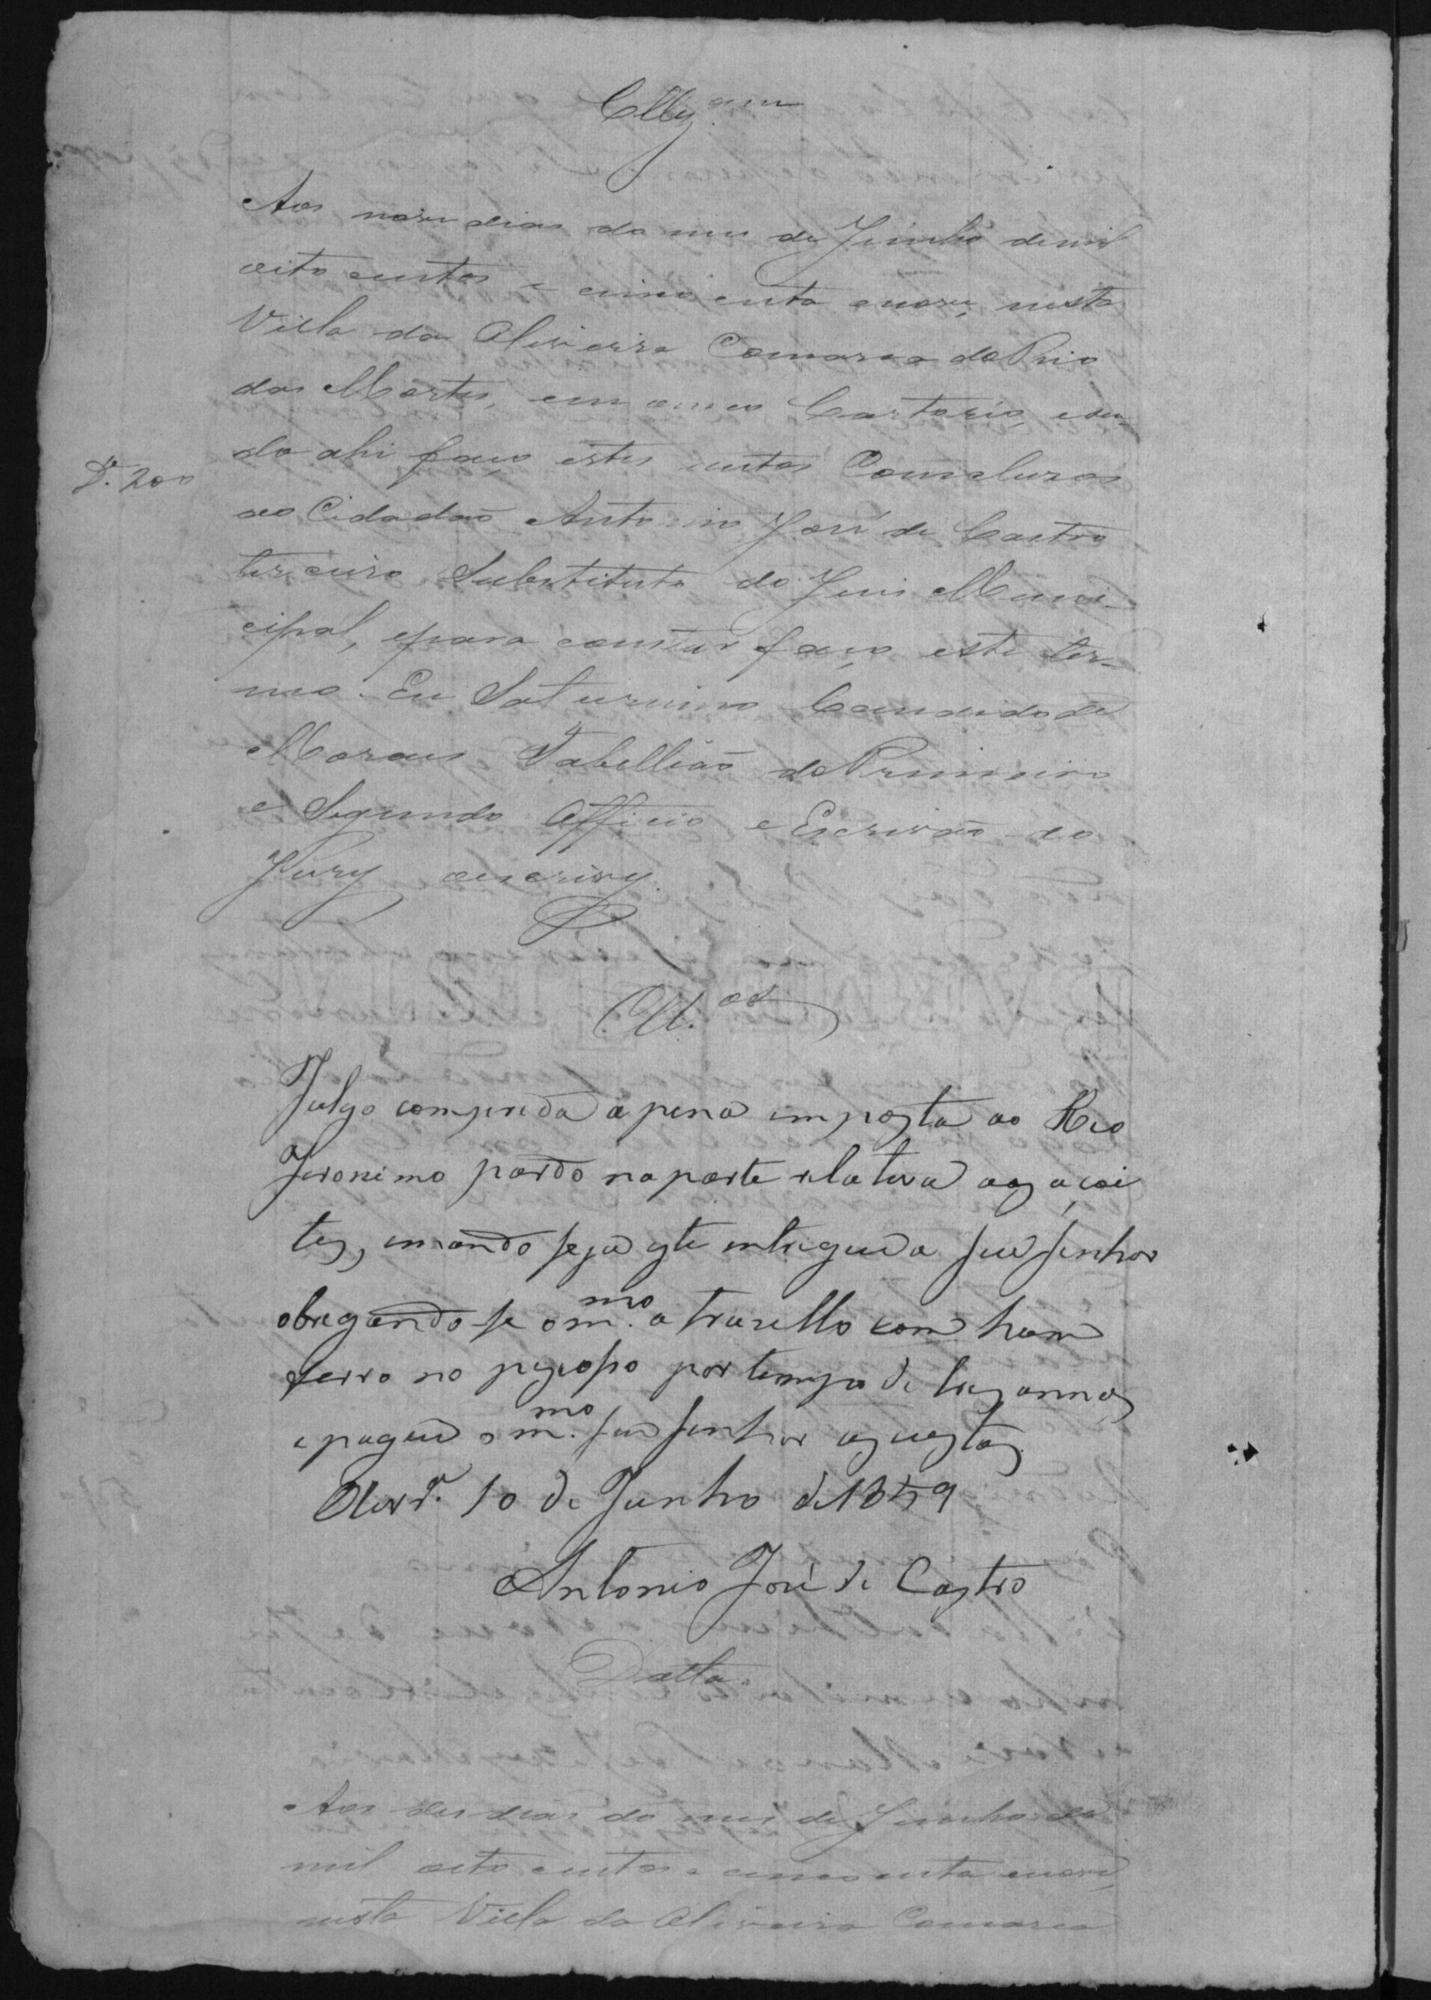 Cll.ᵃᵐ
Aos nove dias do mes de Junho de mil
oito centos e cincoenta e nove, nesta
Villa da Oliveira Comarca do Rio
das Mortes, em o meu Cartorio, e sen-
do ahi faço estes autos Concluzos
ao Cidadão Antonio José de Castro
terceiro Substituto do Juis Muni-
cipal, e para constar faço este ter-
mo. Eu Saturnino Candido de
Moraes Tabellião do Primeiro
e Segundo Officio e Escrivão do
Jury o escrivy.
D. 200
Cll.ᵒˢ
Julgo comprida a pena imposta ao Reo
Jeronimo pardo na parte relativa aos açoi
tes, e mando seja este entregue a seu senhor
obrigando se o m.ᵐᵒ a trasello com hum
ferro no pescoso por tempo de tres annos
e pague o m.ᵐᵒ seu senhor as custas
Olivr.ᵃ 10 de Junho de 1859
Antonio José de Castro
Datta.
Aos des dias do mes de Junho de
mil oito centos e cincoenta e nove,
nesta Villa da Oliveira Comarca